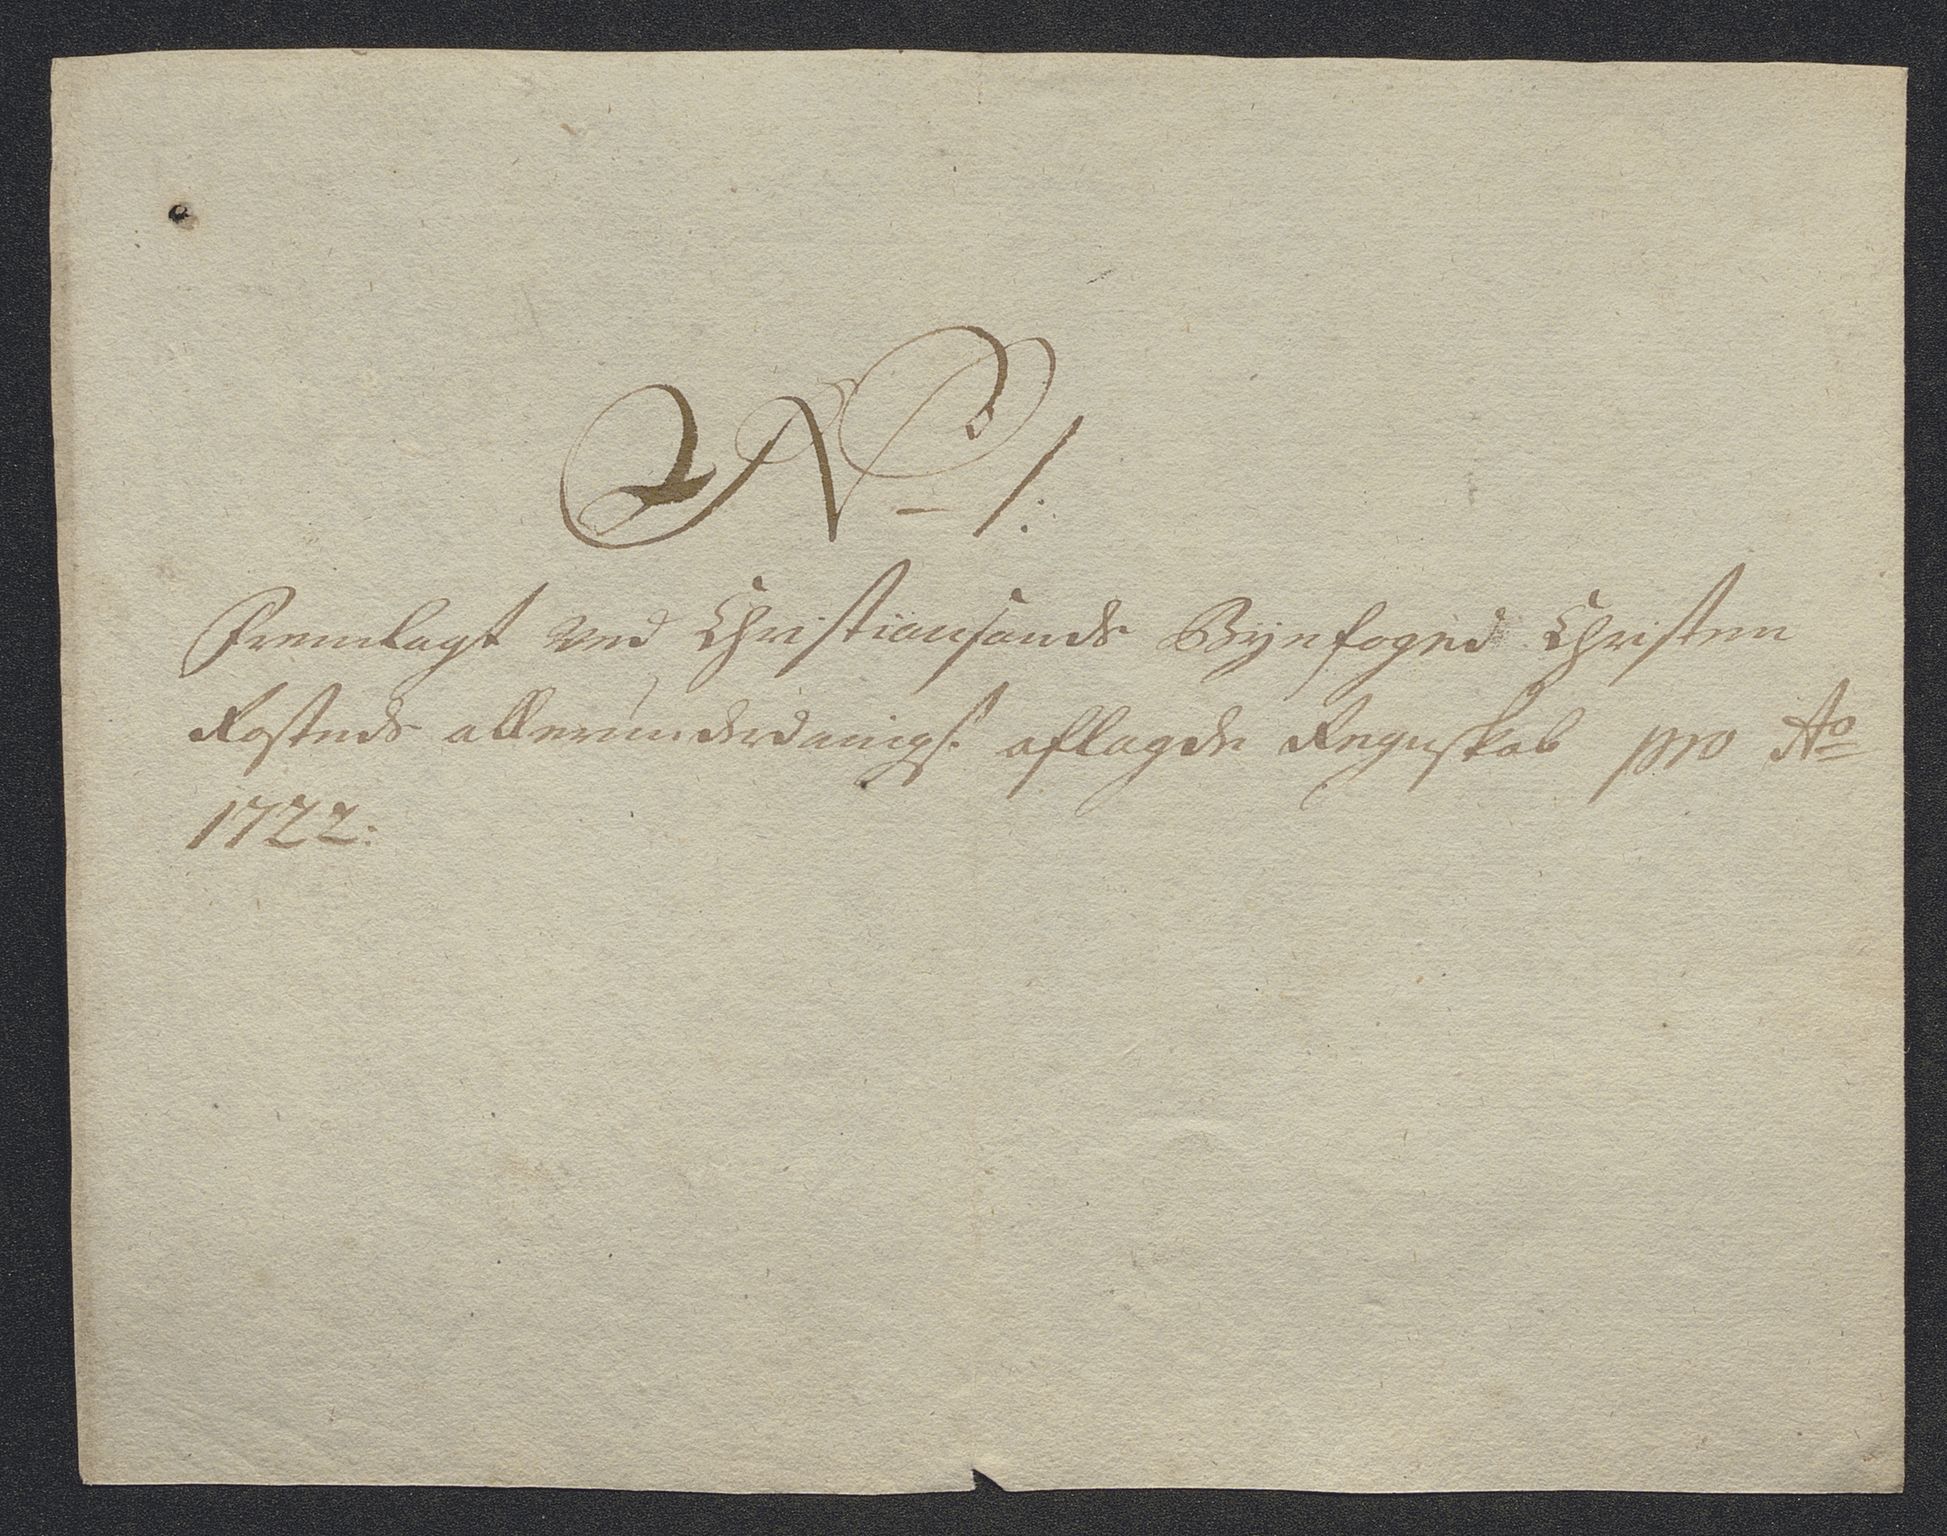 No 1:
Fremlagt ved Christiansands Byefoged Christen
Rosteds allerunderdanigs: aflagde Regnskab pro Ao
1722: